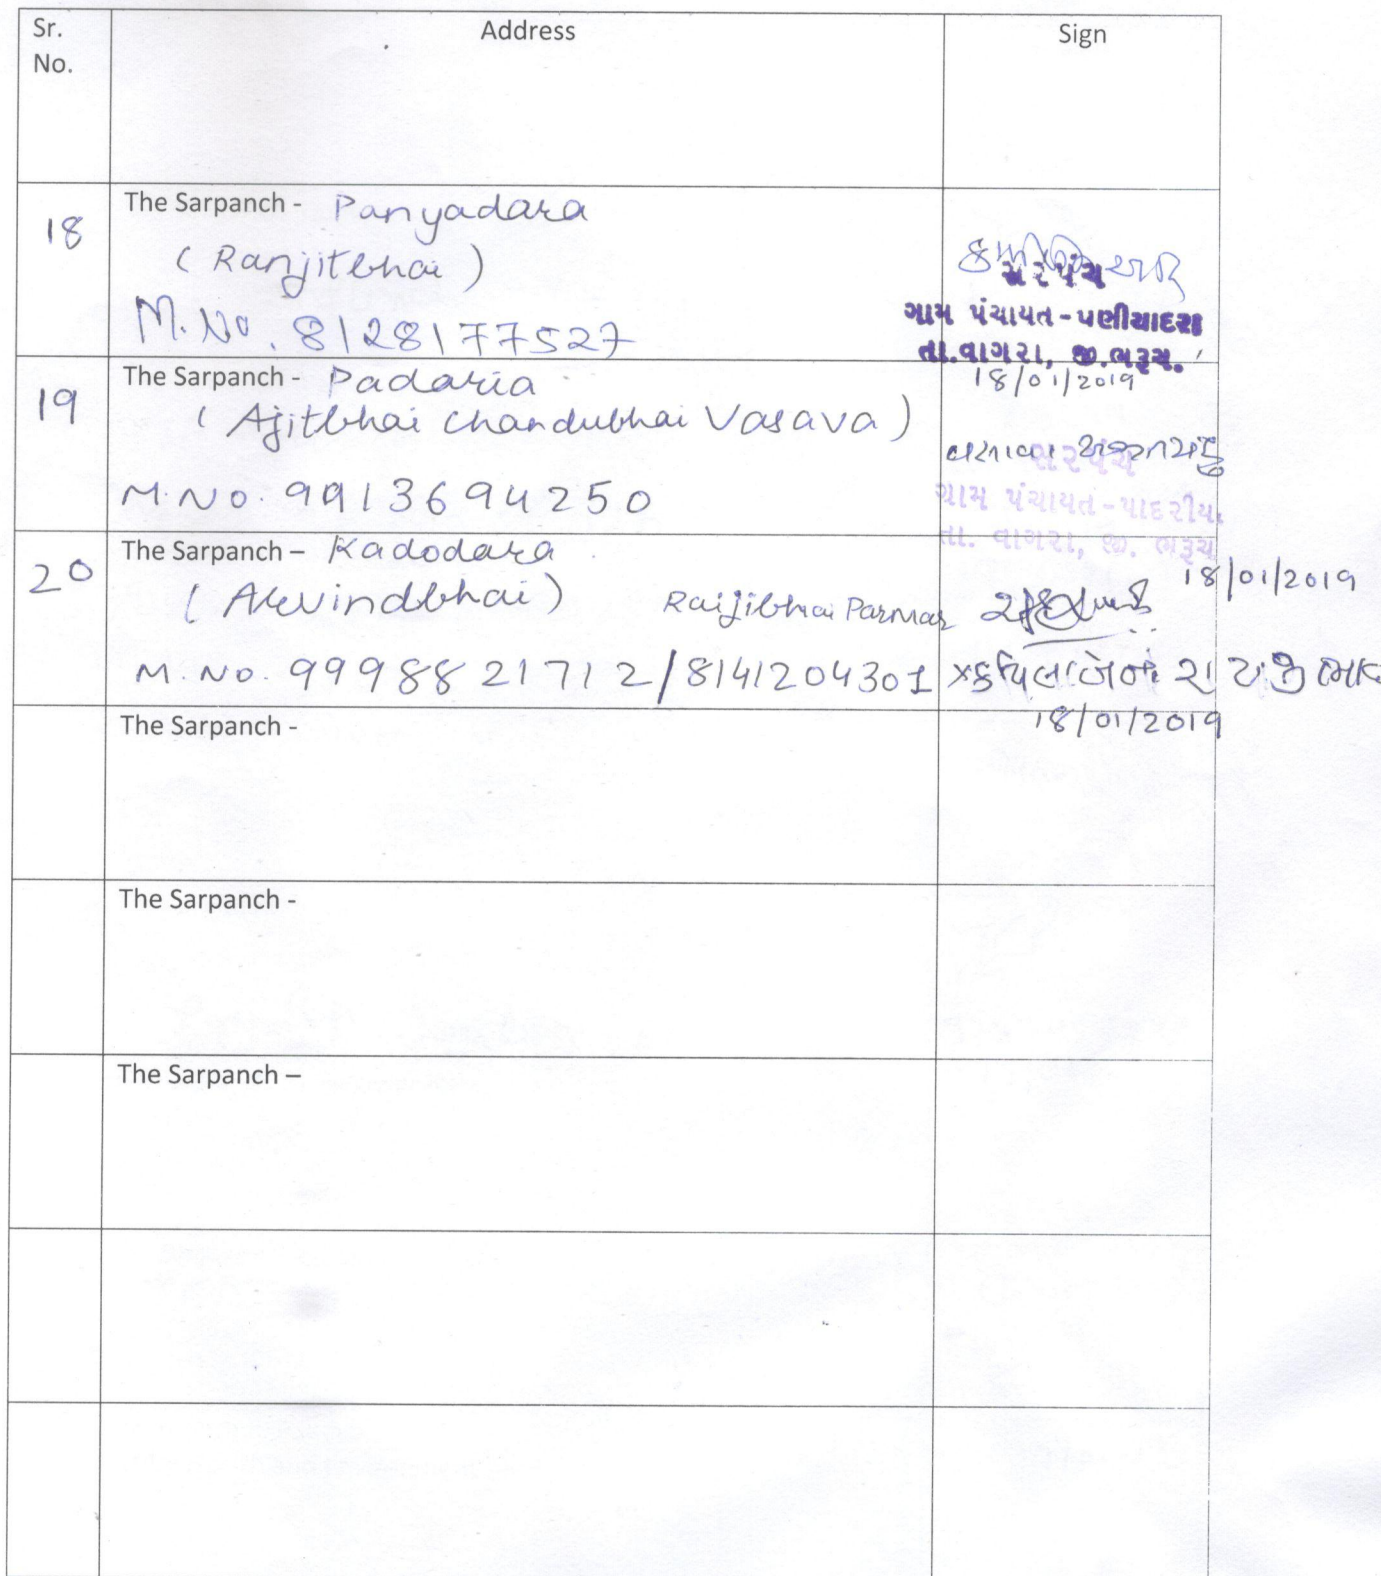 Sr. No.
Address
Sign
18
The Sarpanch - Panyadara
(Ranjitbhai)
M. No. 8128177527
સરપંચ
ગામ પંચાયત - પણીયાદરા
તા.વાગરા, જી.ભરૂચ.
18/01/2019
19
The Sarpanch - Padaria
(Ajitbhai Chandubhai Vasava)
M. No. 9913694250
વસાવા
સરપંચ
ગ્રામ પંચાયત - પાદરીયા
તા. વાગરા, જી. ભરૂચ
18/01/2019
20
The Sarpanch – Kadodara
(Arvindbhai)
Raijibhai Parmar
M. No. 9998821712/8141204301
x કપિલાબેન રાયજીભાઇ
18/01/2019
The Sarpanch -
The Sarpanch -
The Sarpanch –